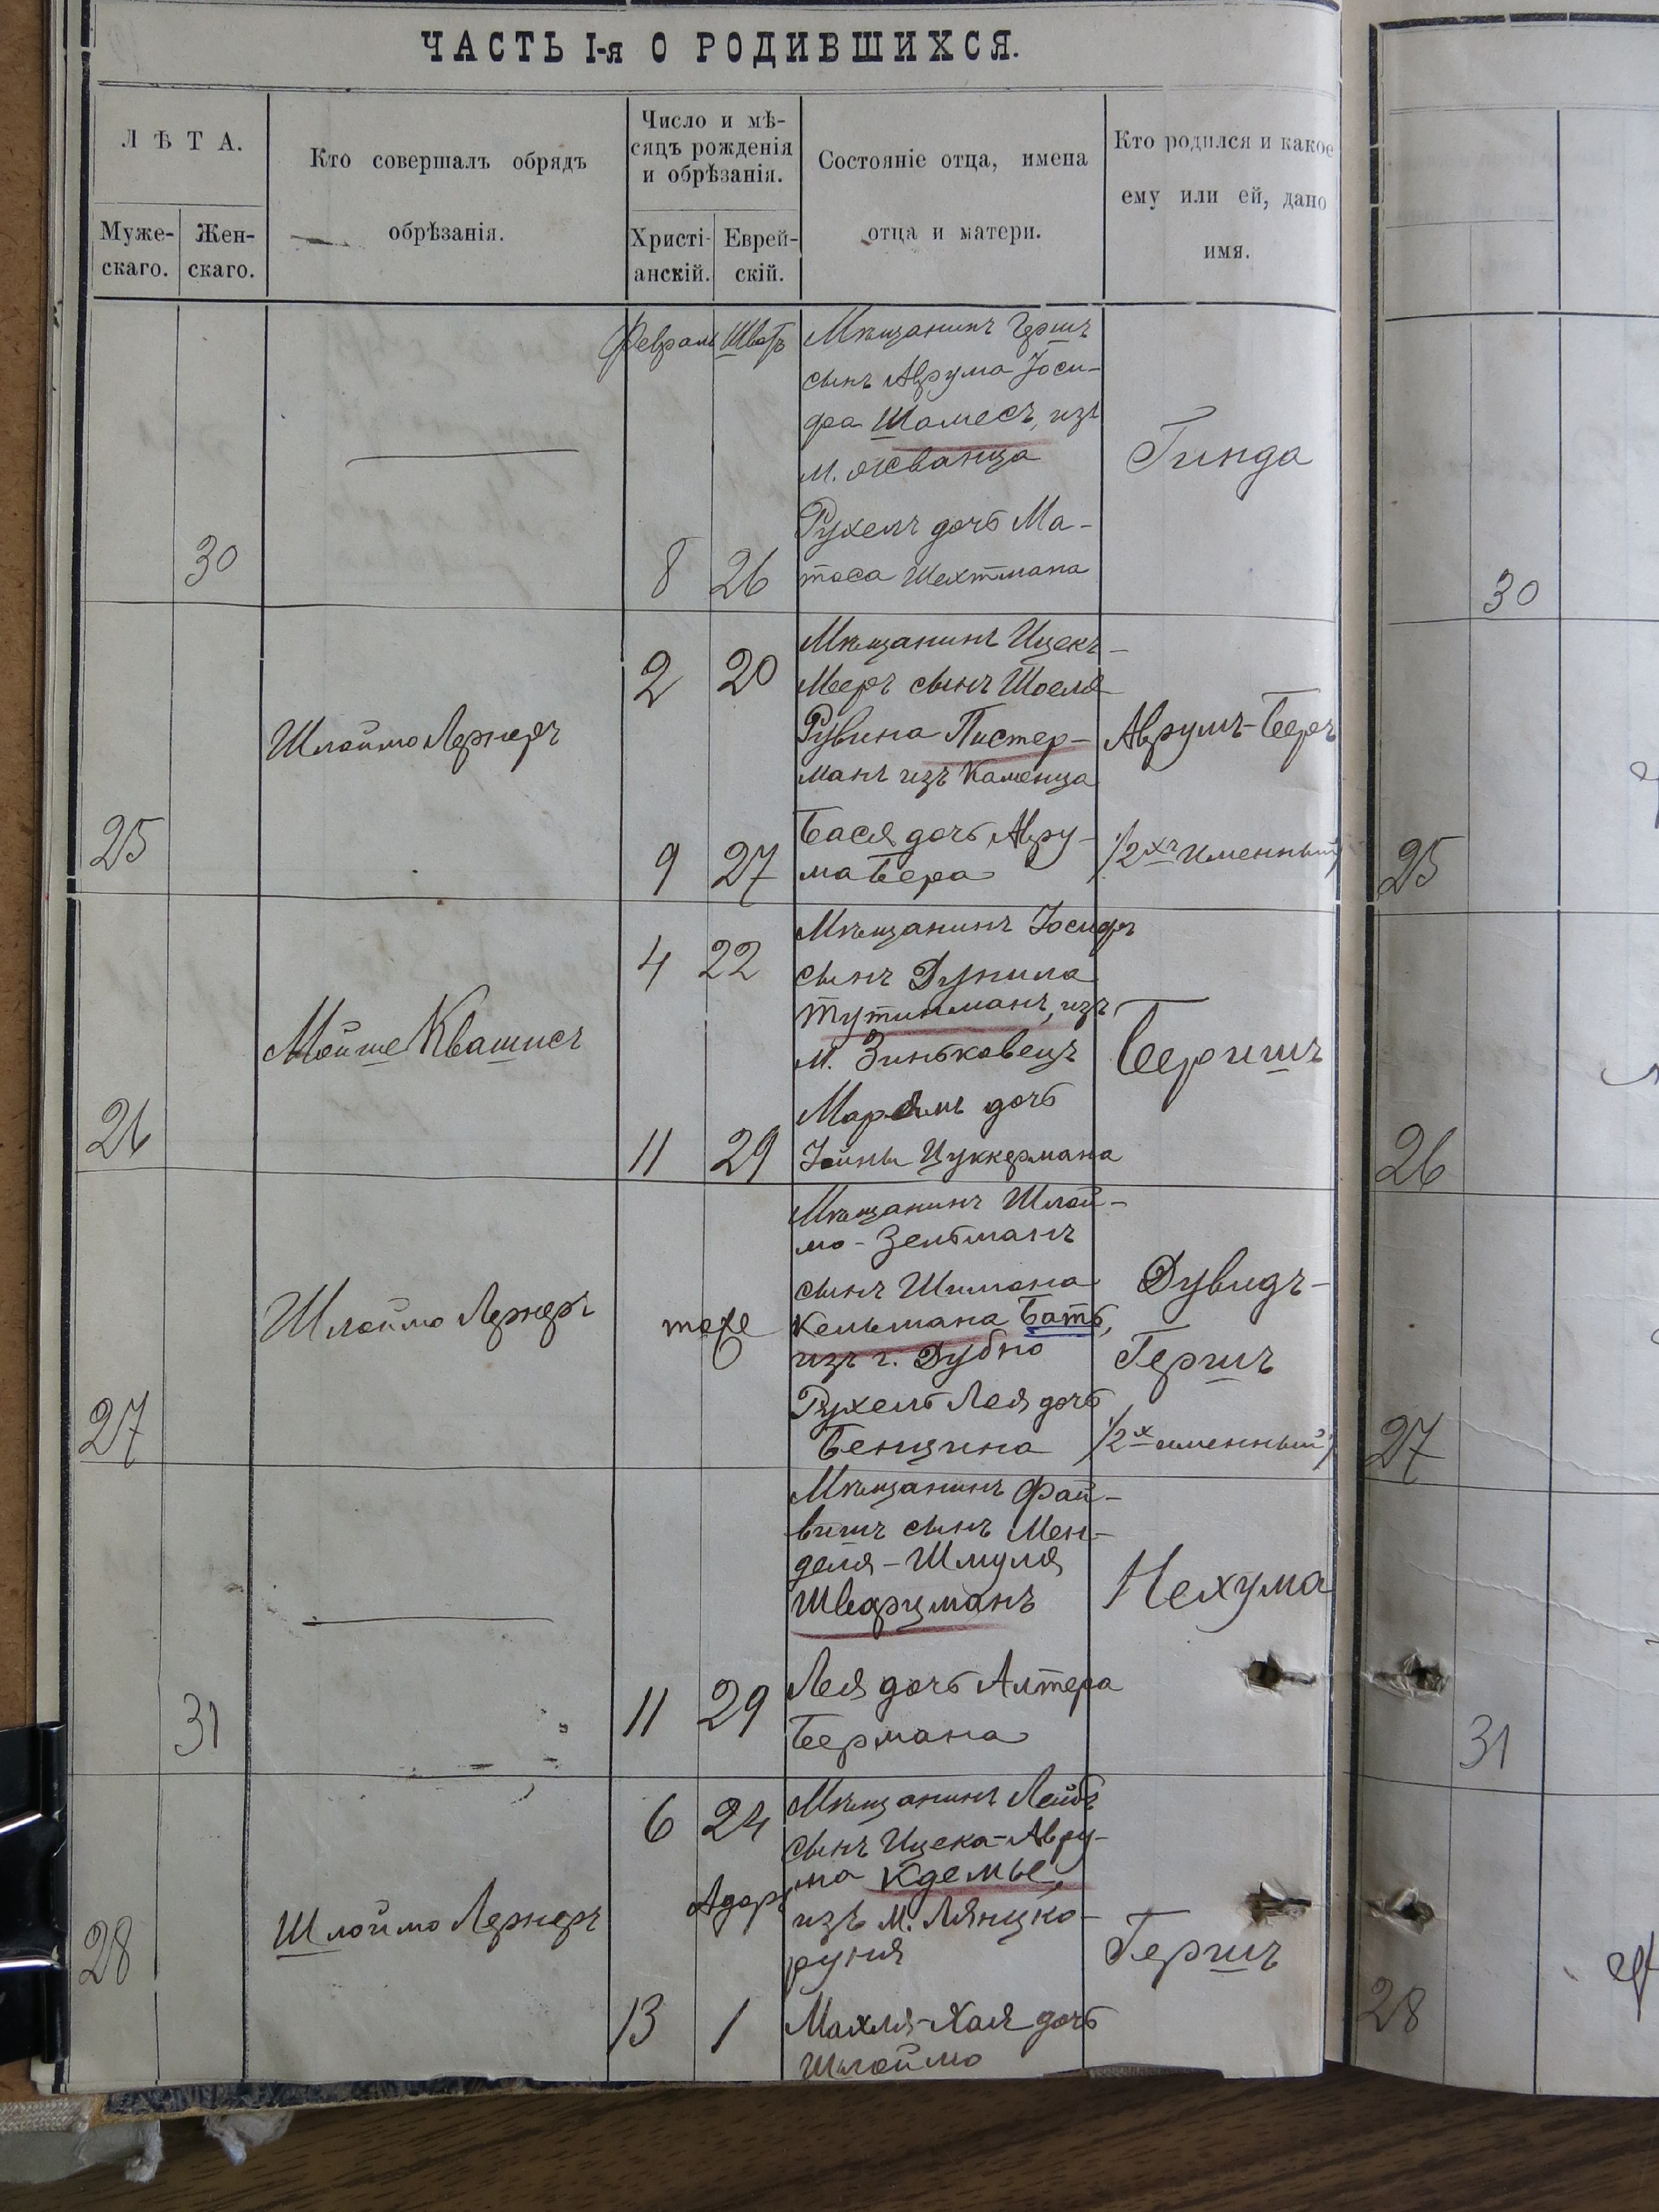 ЧАСТЬ I-я О РОДИВШИХСЯ.
ЛѢТА.
Муже-
скаго.
Жен-
скаго.
Кто совершалъ обрядъ
обрѣзанія.
Число и мѣ-
сяцъ рожденія
и обрѣзанія.
Христі-
анскій.
Еврей-
скій.
Состояніе отца, имена
отца и матери.
Кто родился и какое
ему или ей, дано
имя.
30
Февраль
8
Шватъ
26
Мѣщанинъ Гершъ
сынъ Аврума Іоси-
фа Шамесъ, изъ
м. Жванца
Рухель дочь Ма-
тоса Шехтмана
Гинда
25
Шлоймо Лернеръ
2 20
9 27
Мѣщанинъ Ицекъ-
Мееръ сынъ Шоеля
Рувина Пистер-
манъ изъ Каменца
Бася дочь Авру-
ма Бера
Аврумъ-Беръ
/2хъ именный/
26
Мойше Квашисъ
4 22
11 29
Мѣщанинъ Іосифъ
сынъ Дунила
Тутинманъ, изъ
м. Зиньковецъ
Марьямъ дочь
Іойны Цуккермана
Беришъ
27
Шлоймо Лернеръ
тоже
Мѣщанинъ Шлой-
мо-Зельманъ
сынъ Шимона
Кельмана Батъ,
изъ г. Дубно
Рухель Лея дочь
Бенциона
Дувидъ-
Гершъ
/2х именный/
31
11 29
Мѣщанинъ Фай-
вишъ сынъ Мен-
деля-Шмуля
Шварцманъ
Лея дочь Алтера
Бермана
Нехума
28
Шлоймо Лернеръ
6 24
Адаръ
13 1
Мѣщанинъ Лейбъ
сынъ Ицека-Авру-
ма Кдемье,
изъ м. Лянцко-
руня
Махля-Хая дочь
Шлоймо
Гершъ
30
25
26
27
31
28